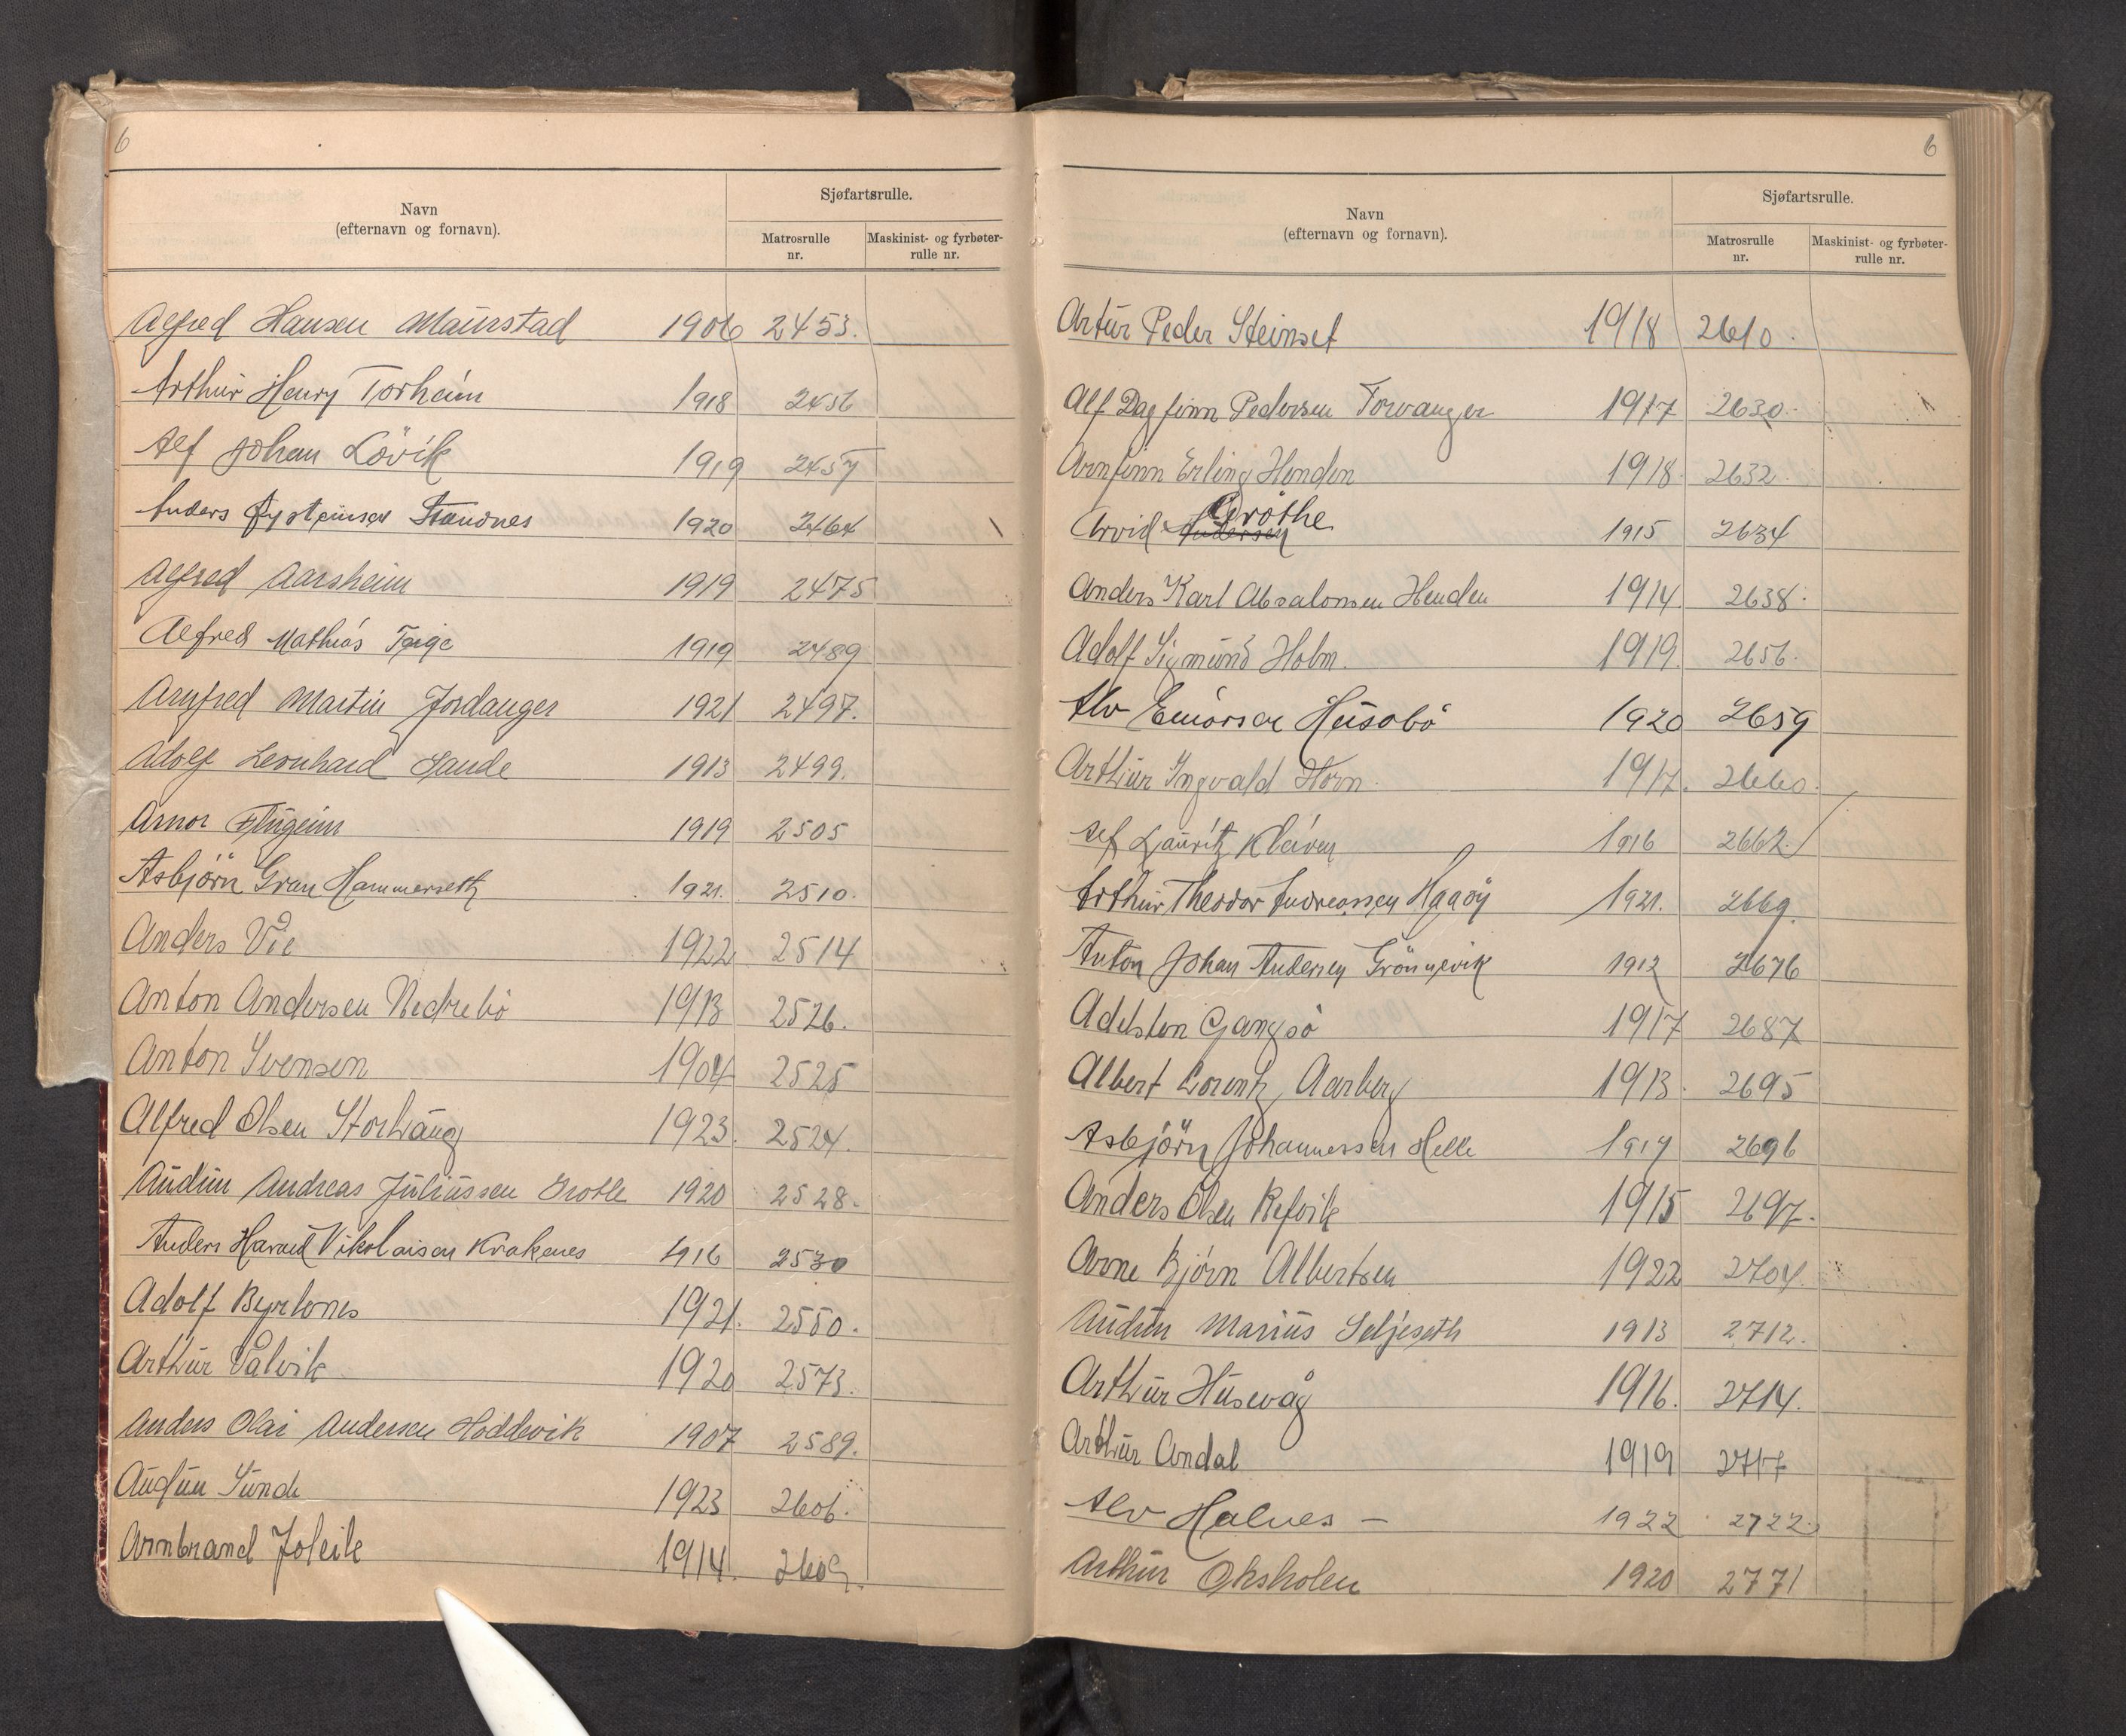 6
Navn
(efternavn og fornavn).
Sjøfartsrulle.
Matrosrulle
nr.
Maskinist- og fyrbøter-
rulle nr.
Alfred Hansen Maurstad 1906 2453.
Arthur Henry Torheim 1918 2456
Alf Johan Lövik 1919 2457
Anders Øysteinsen Standnes 1920 2464
Alfred Aarsheim 1919 2475
Alfred Mathias Teige 1919 2489
Arnfred Martin Jordanger 1921 2497.
Adolf Leonhard Sande 1913 2499.
Arnor 1919 2505
Asbjörn Gran Hammerseth 1921. 2510.
Anders Vie 1922 2514
Anton Andersen Nedrebö 1913 2526.
Anton Svensen 1904 2525
Alfred Olsen Storhaug 1923. 2524.
Audun Andreas Juliussen Grotle 1920 2528.
Anders Harald Nikolaisen Krakenes 1916 2530
Adolf Byrlones 1921. 2550.
Arthur Valvik 1920 2573.
Anders Olai Andersen Hoddevik 1907 2589.
Audun Sunde 1923 2606.
Armbrand Joleik 1914. 2609.
6
Navn
(efternavn og fornavn).
Sjøfartsrulle.
Matrosrulle
nr.
Maskinist- og fyrbøter-
rulle nr.
Artur Peder Steinset 1918 2610.
Alf Dagfinn Pedersen Torvanger 1917 2630.
Arnfinn Erling Henden 1918. 2632.
Grothe
Arvid Andersen 1915 2634
Anders Karl Absalonsen Henden 1914. 2638.
Adolf Sigmund Holm. 1919. 2656.
Alv Einarsen Husebö 1920 2659
Arthur Ingvald Horn. 1917. 2660.
Alf Lauritz Kläven 1916 2662.
Arthur Theodor Andreassen Haaöy 1921. 2669.
Anton Johan Andersen Grönnevik 1912 2676
Adelsten Gangsö 1917 2687
Albert Lorentz Aarberg 1913. 2695
Asbjörn Johannessen Helle 1917 2696
Anders Olsen Refvik 1915 2697.
Arne Bjørn Albertsen 1922 2704.
Audun Marius Seljeseth 1913 2712.
Arthur Husevåg 1916. 2714.
Arthur Andal 1919 2717
Alv Halnes – 1922 2722.
Arthur Oksholen 1920 2771